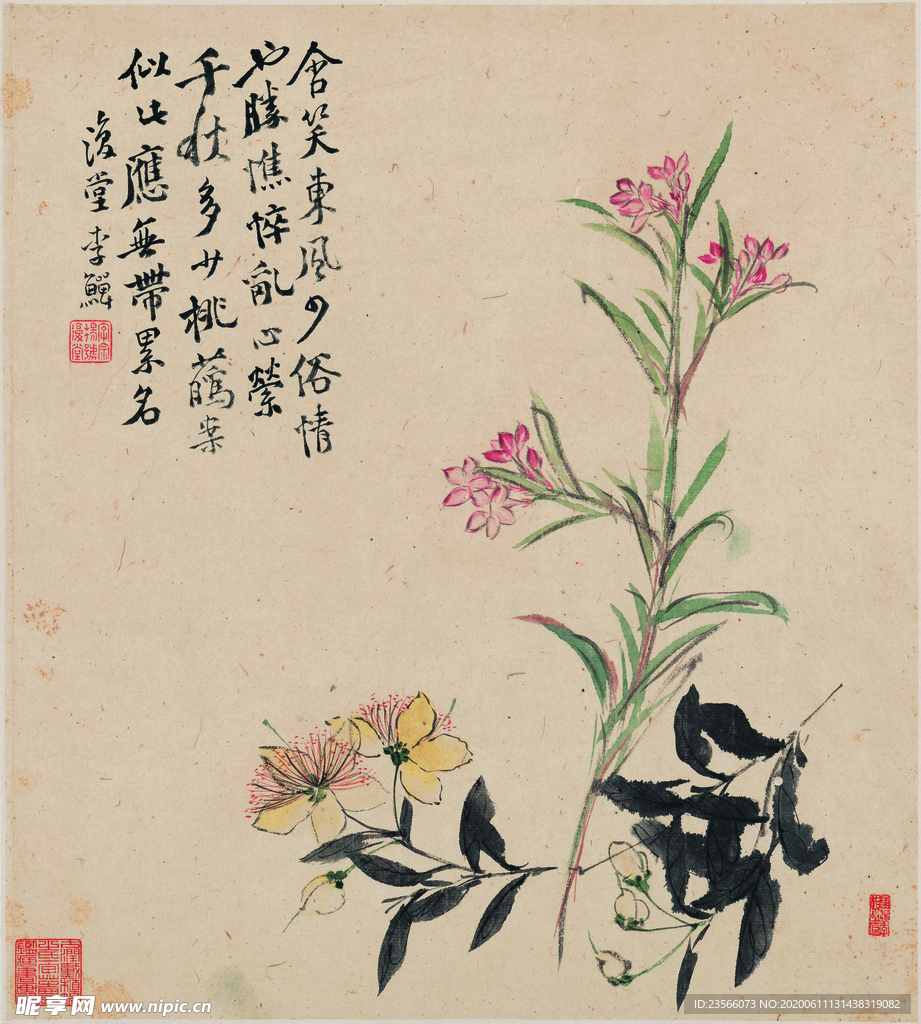 含笑東風少俗情
也勝憔悴亂心縈
千秋多少桃
似此應無帶累名
復堂李鱓
昵享网 www.nipic.cn
ID:23566073 NO:20200611131438319082